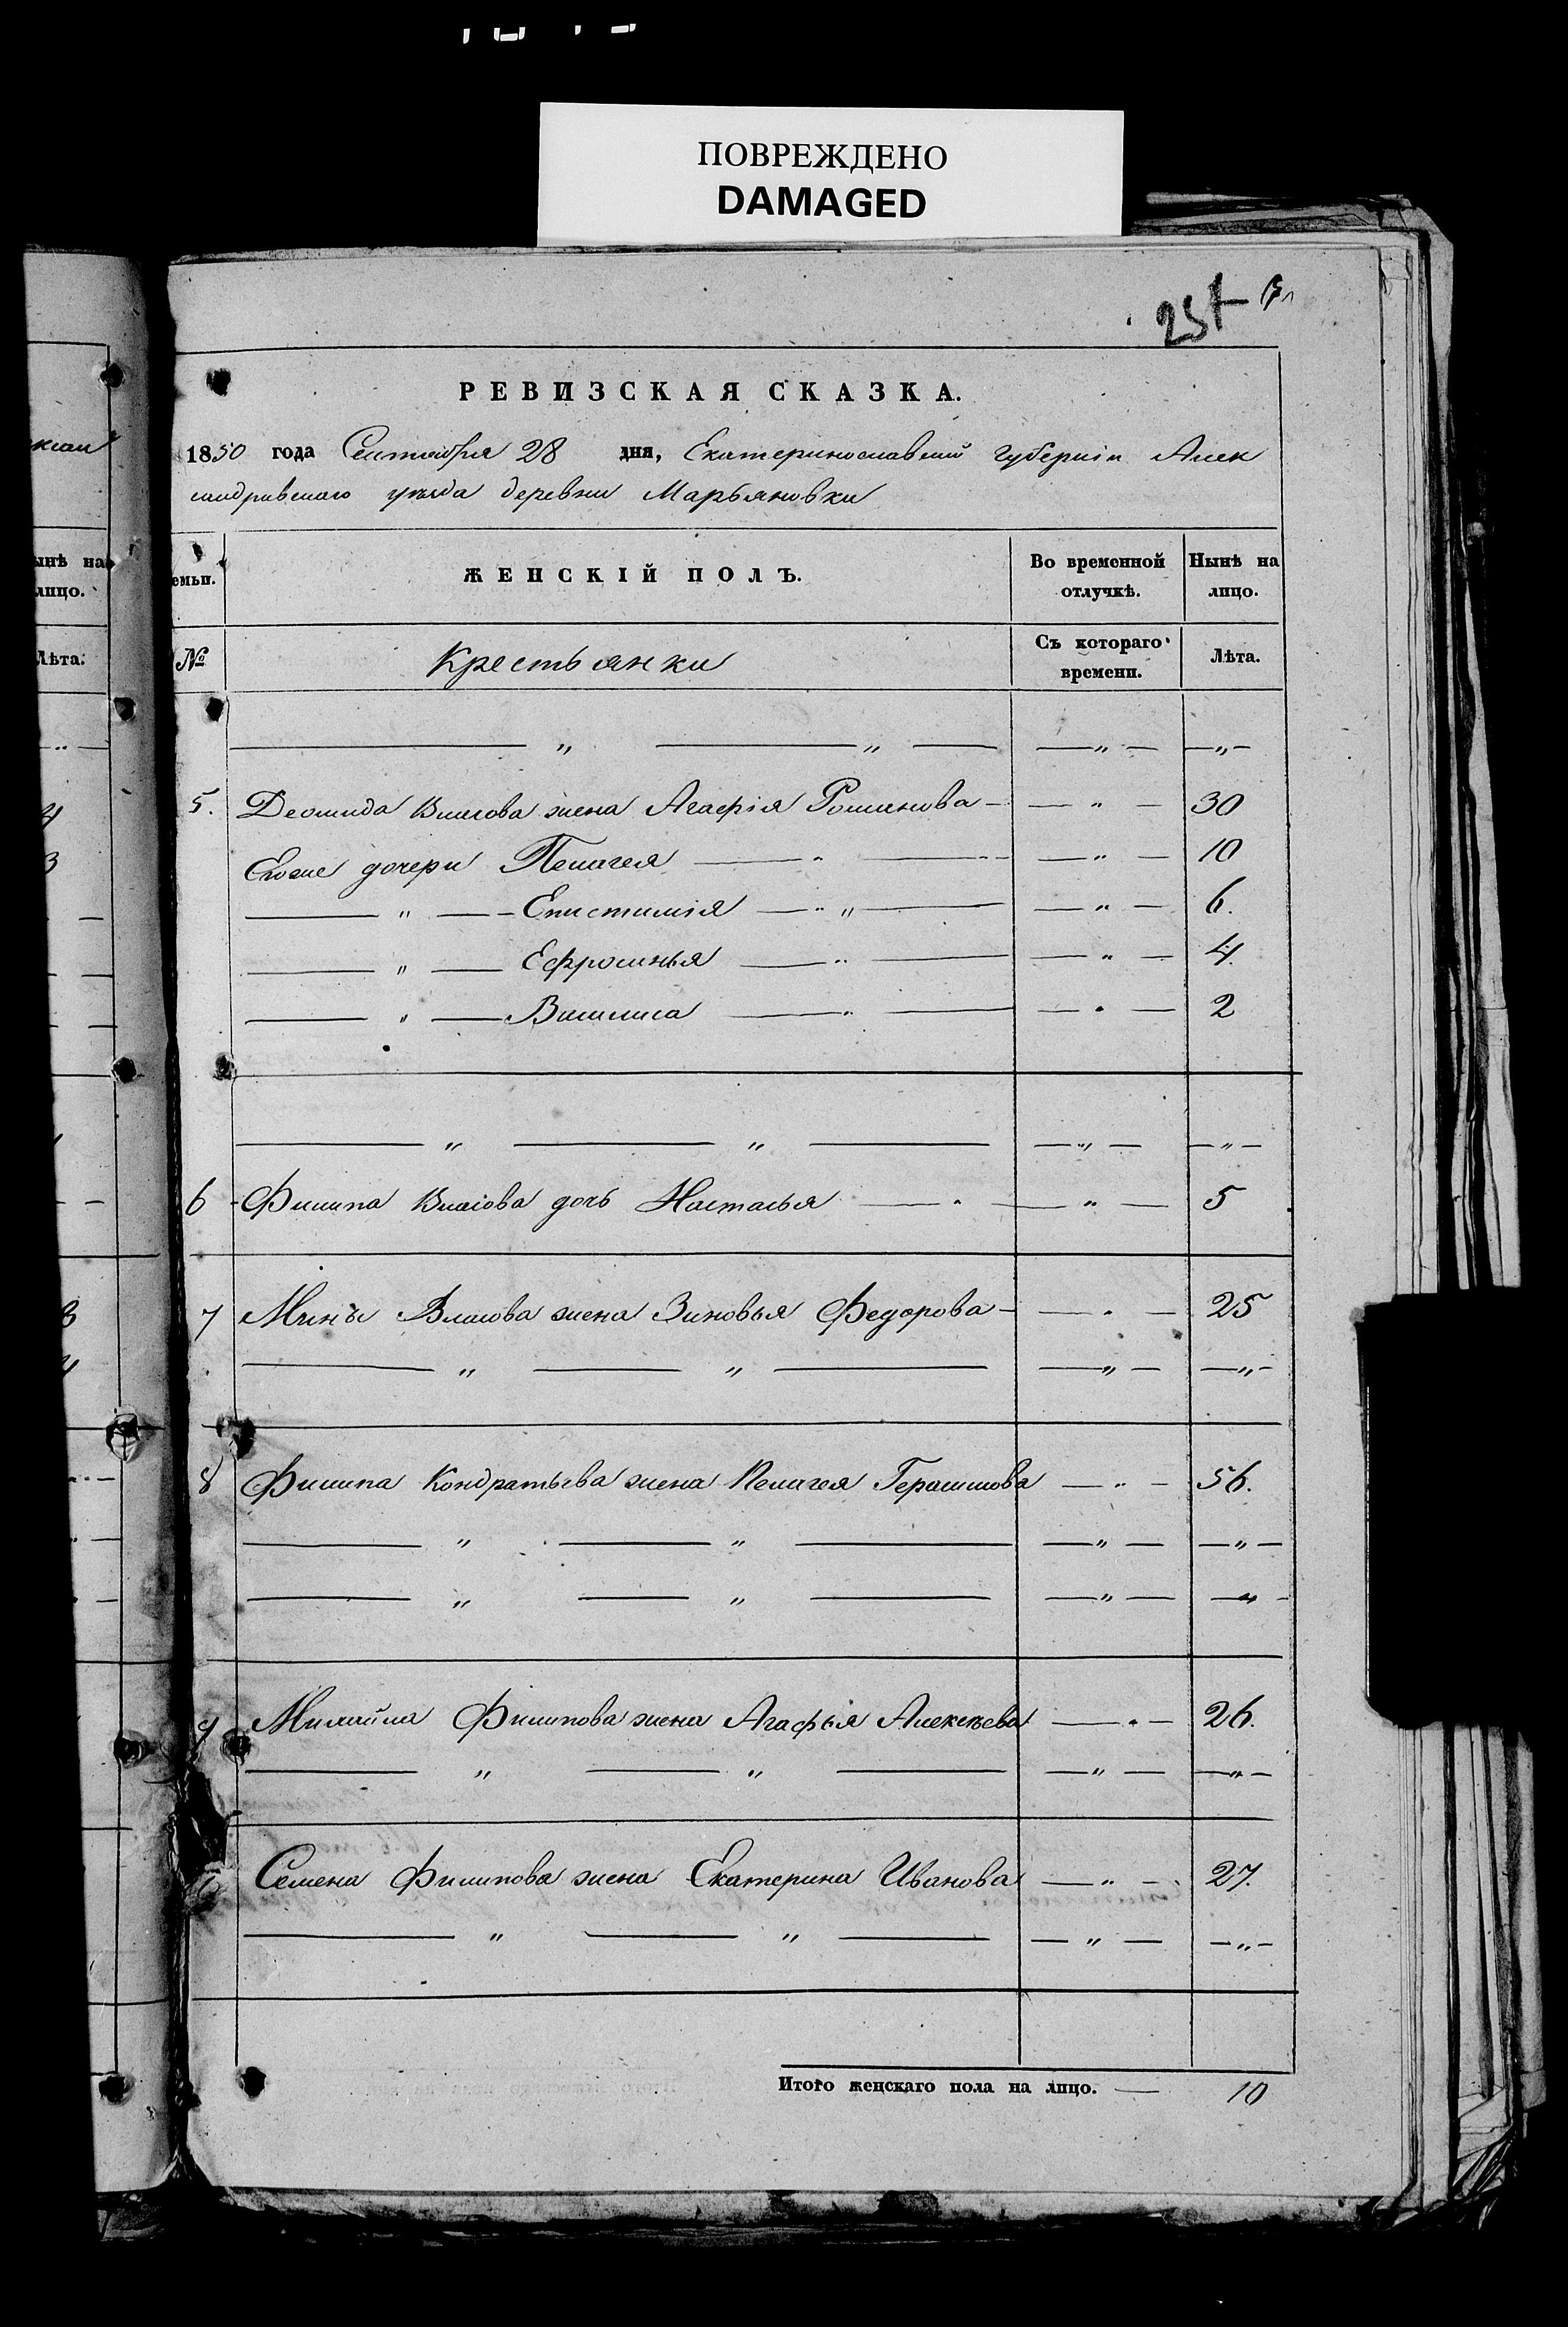 ПОВРЕЖДЕНО
DAMAGED
РЕВИЗСКАЯ СКАЗКА.
1850 года Сентября 28 дня, Екатеринославской губернии Алек
сандровскаго уезда деревни Марьяновки
ынѣ на
лицо.
Лѣта.
емьи. ЖЕНСКІЙ ПОЛЪ. Во временной отлучкѣ. Нынѣ на лицо.
№ Крестьянки Съ котораго времени. Лѣта.
— „ — „ — — „ — — „ —
5. Деомида Власова жена Агафія Романова — — „ — 30
Его же дочери Пелагея — „ — — „ — 10
— „ — Епистимія — „ — — „ — 6.
— „ — Ефросинья — „ — — „ — 4.
— „ — Василиса — „ — — „ — 2
— „ — „ — — „ — — „ —
6 Филипа Власова дочь Настасья — „ — — „ — 5
7 Мины Власова жена Зиновья Федорова — — „ — 25
— „ — „ — — „ — — „ —
8 Филипа Кондратьева жена Пелагея Герасимова — „ — 56.
— „ — „ — — „ — — „ —
— „ — „ — — „ — — „ —
9 Михайла Филипова жена Агафья Алексеева — „ — 26.
— „ — „ — — „ — — „ —
Семена Филипова жена Екатерина Иванова — „ — 27.
— „ — „ — — „ — — „ —
Итого женскаго пола на лицо. — 10